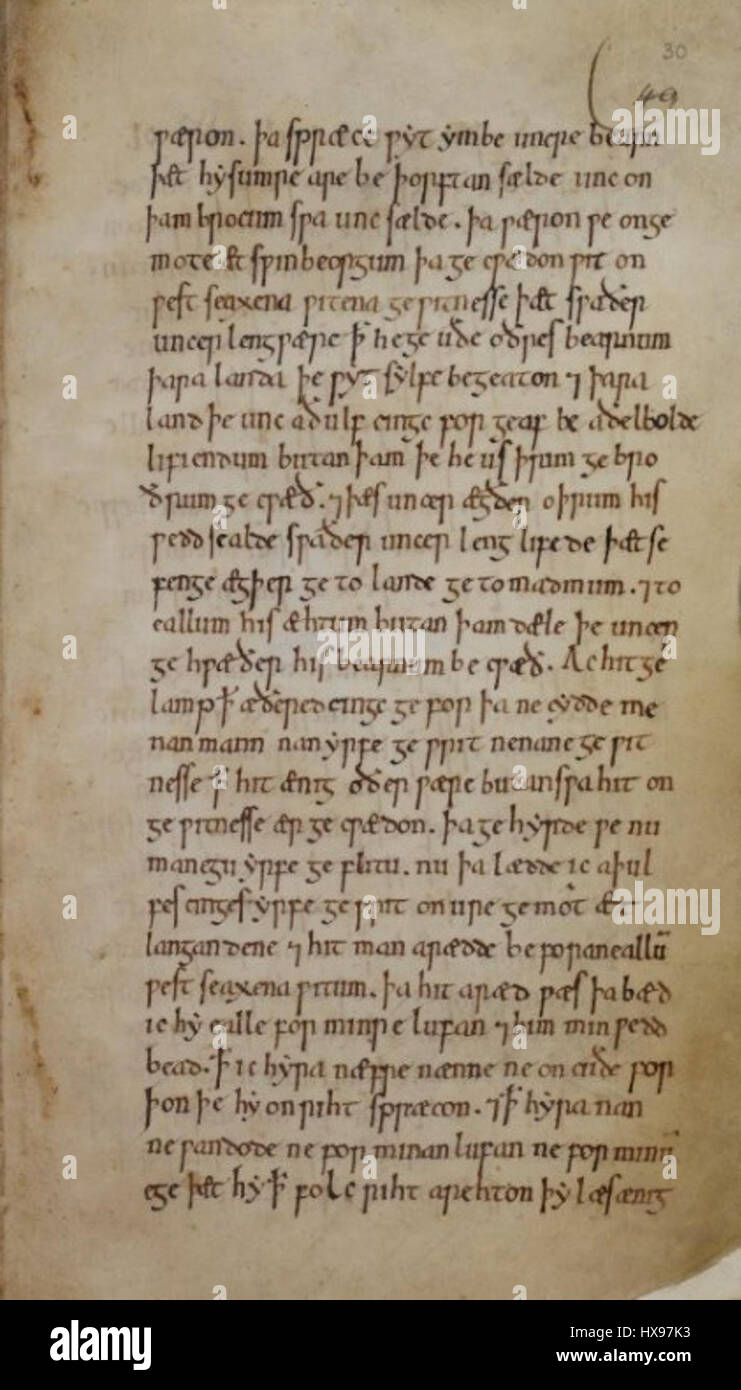 30
49
ƿæron. þa spræce ƿẏt ẏmbe uncre bearn
þæt hẏ sumre are beþorftan sælde unc on
þam brocum sƿa unc sælde. þa ƿæron ƿe onge
mote æt sƿinbeorgum þa ge cƿædon ƿit on
ƿest seaxena ƿitena geƿitnesse þæt sƿaðer
uncer leng ƿære ꝥ he ge uðe oðres bearnum
þara landa þe ƿẏt sẏlfe begeaton ⁊ þara
land þe unc aðulf cingc for geaf be aðelbolde
lifiendum butan þam þe he us þrim ge bro
ðrum ge cƿæð. ⁊ þæs uncer ægðer oþrum his
ƿedd sealde sƿaðer uncer leng lifede þæt se
fenge ægþer ge to lande ge to madmum. ⁊ to
eallum his æhtum butan þam dæle þe uncer
ge hƿæðer his bearnum be cƿæð. Ac hit ge
lamp ꝥ æðered cingc ge for þa ne cẏdde me
nan mann nan ẏrfe ge ƿrit ne nane ge ƿit
nesse ꝥ hit ænig oðer ƿære butan sƿa hit on
ge ƿitnesse ær ge cƿædon. þa ge hẏrde ƿe nu
manegu ẏrfe ge flitu. nu þa lædde ic aþul
fes cinges ẏrfe ge ƿrit on ure gemot æt
langandene ⁊ hit man arædde be foran eallū
ƿest seaxena ƿitum. þa hit aræd ƿæs þa bæd
ic hẏ ealle for minre lufan ⁊ him min ƿedd
bead. ꝥ ic hẏra næfre nænne ne on cuðe for
þon þe hẏ on riht spræcon. ⁊ ꝥ hẏra nan
ne ƿandode ne for minan lufan ne for minū
ege þæt hẏ ꝥ folc riht arehton þẏ læs ænig
a
alamy
Image ID: HX97K3
www.alamy.com